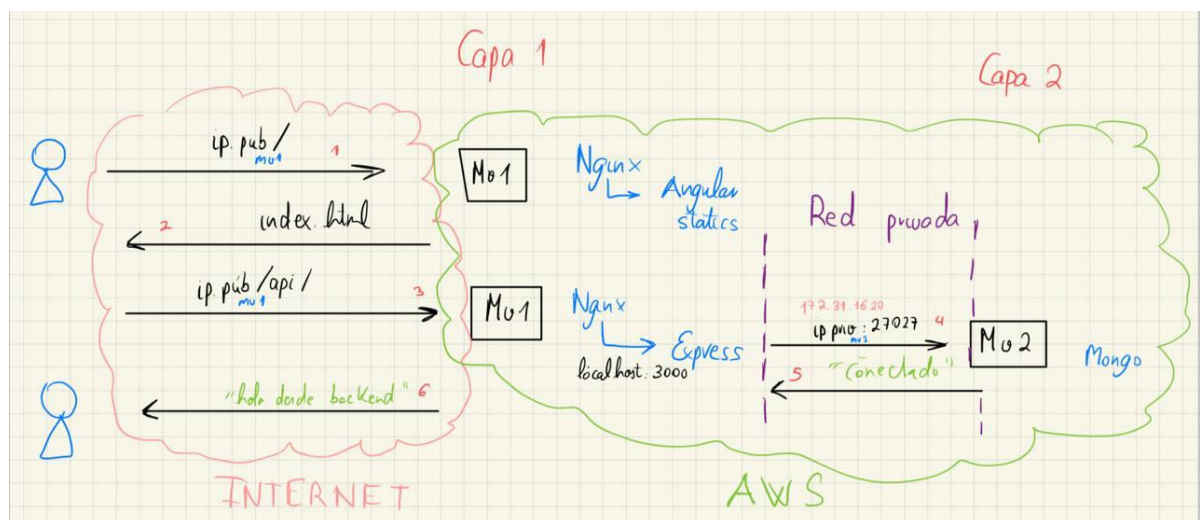 Capa 1
Capa 2
ip. pub/
mv1
1
Mv1
Nginx
Angular
statics
Red privada
2
index.html
ip. púb/api/
mv1
3
Mv1
Nginx
Express
localhost: 3000
172.31.16 20
ip priv : 27027
4
Mv2
Mongo
5
"Conectado"
"hola desde backend"
6
INTERNET
AWS